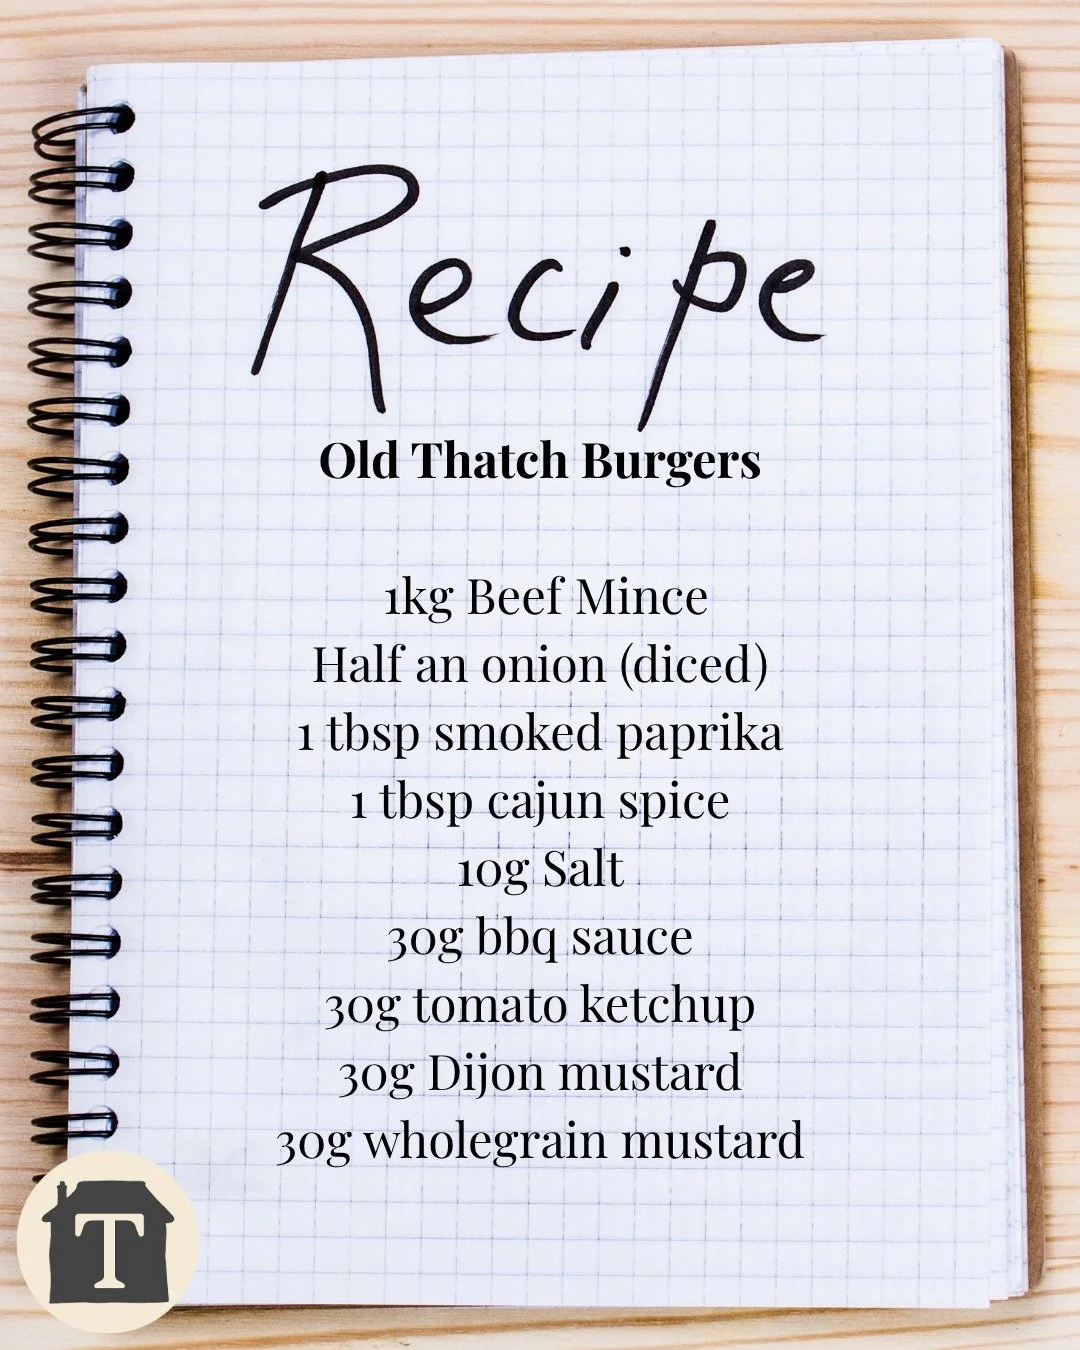 Recipe
Old Thatch Burgers
1kg Beef Mince
Half an onion (diced)
1 tbsp smoked paprika
1 tbsp cajun spice
10g Salt
30g bbq sauce
30g tomato ketchup
30g Dijon mustard
30g wholegrain mustard
T